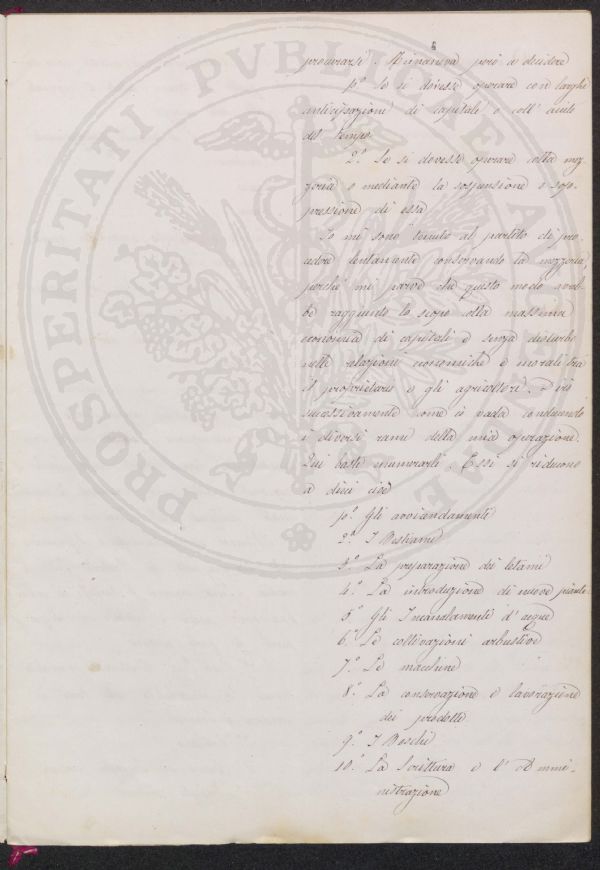 procurarsi. Rimaneva però a decidere
1º. Se si dovesse operare con larghe
anticipazioni di capitale o coll' aiuto
del tempo
2º. Se si dovesse operare colla mez-
zeria o mediante la sospensione o sop-
pressione di essa
Io mi sono tenuto al partito di pro-
cedere lentamente conservando la mezzeria,
perché mi parve che questo modo avreb-
be raggiunto lo scopo colla massima
economia di capitali e senza disturbo
nelle relazioni economiche e morali tra
il proprietario e gli agricoltori. Dirò
successivamente come io vada conducendo
i diversi rami della mia operazione.
Qui basti enumerarli. Essi si riducono
a dieci cioè
1º. Gli avvicendamenti
2º. I Bestiami
3º. La preparazione dei letami
4º. La introduzione di nuove piante
5º. Gli Incanalamenti d' acque
6º. Le coltivazioni arbustive
7º. Le macchine
8º. La conservazione e lavorazione
dei prodotti
9º. I Boschi
10º. La Scrittura e l' Ammi-
nistrazione
PROSPERITATI PVBLICAE